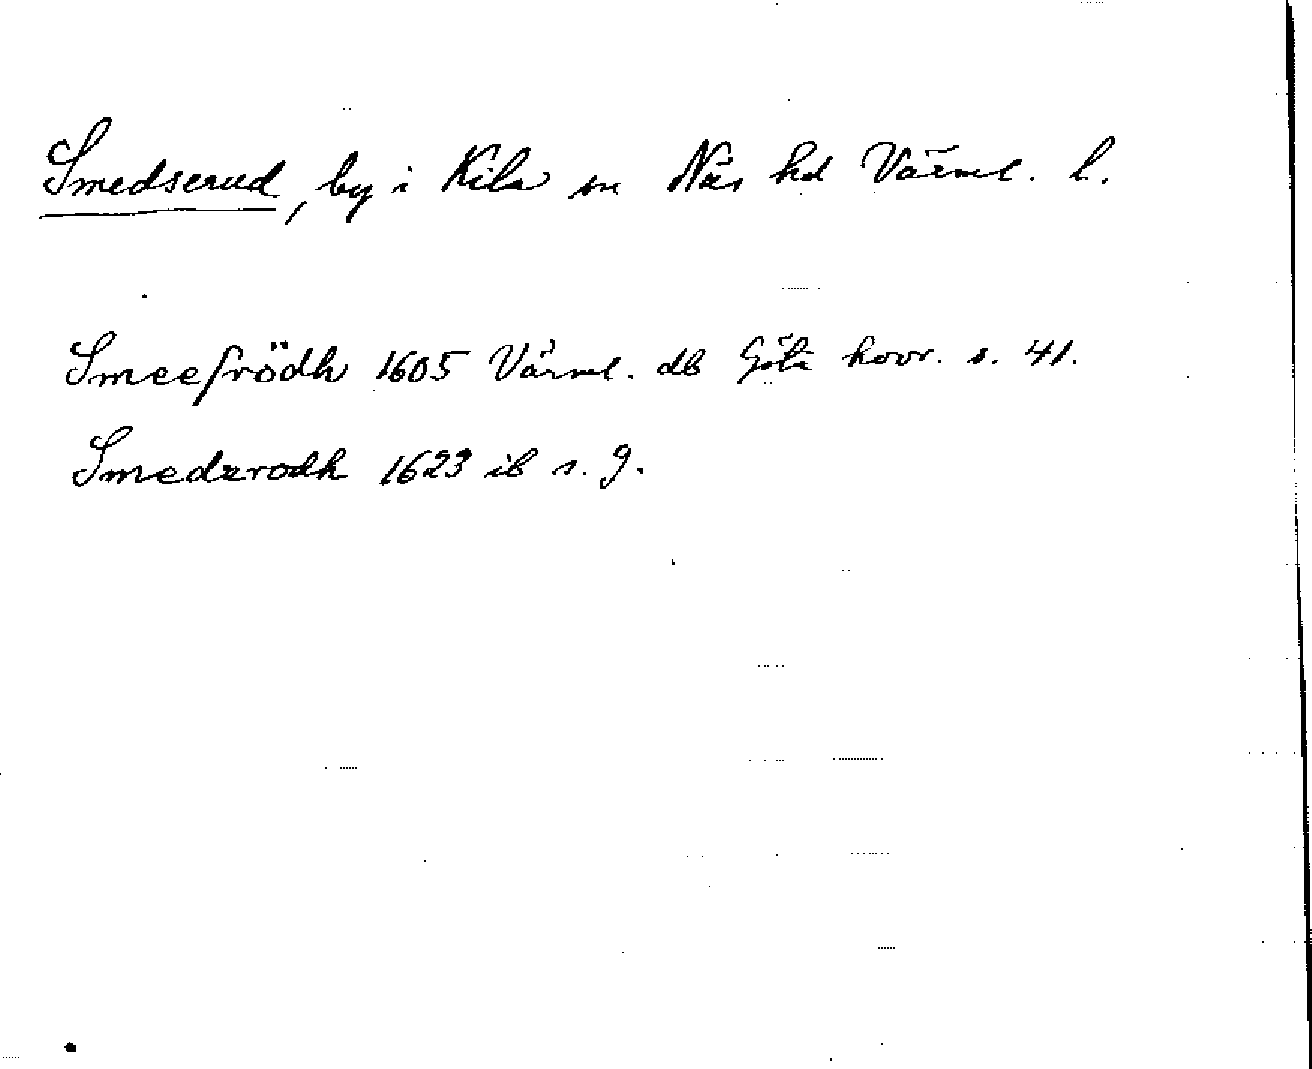 Smedserud, by i Kila sn Näs hd Värml. l.
Smeeſrödh 1605 Värml. db Göta hovr. s. 41.
Smedzrodh 1623 ib s. 9.